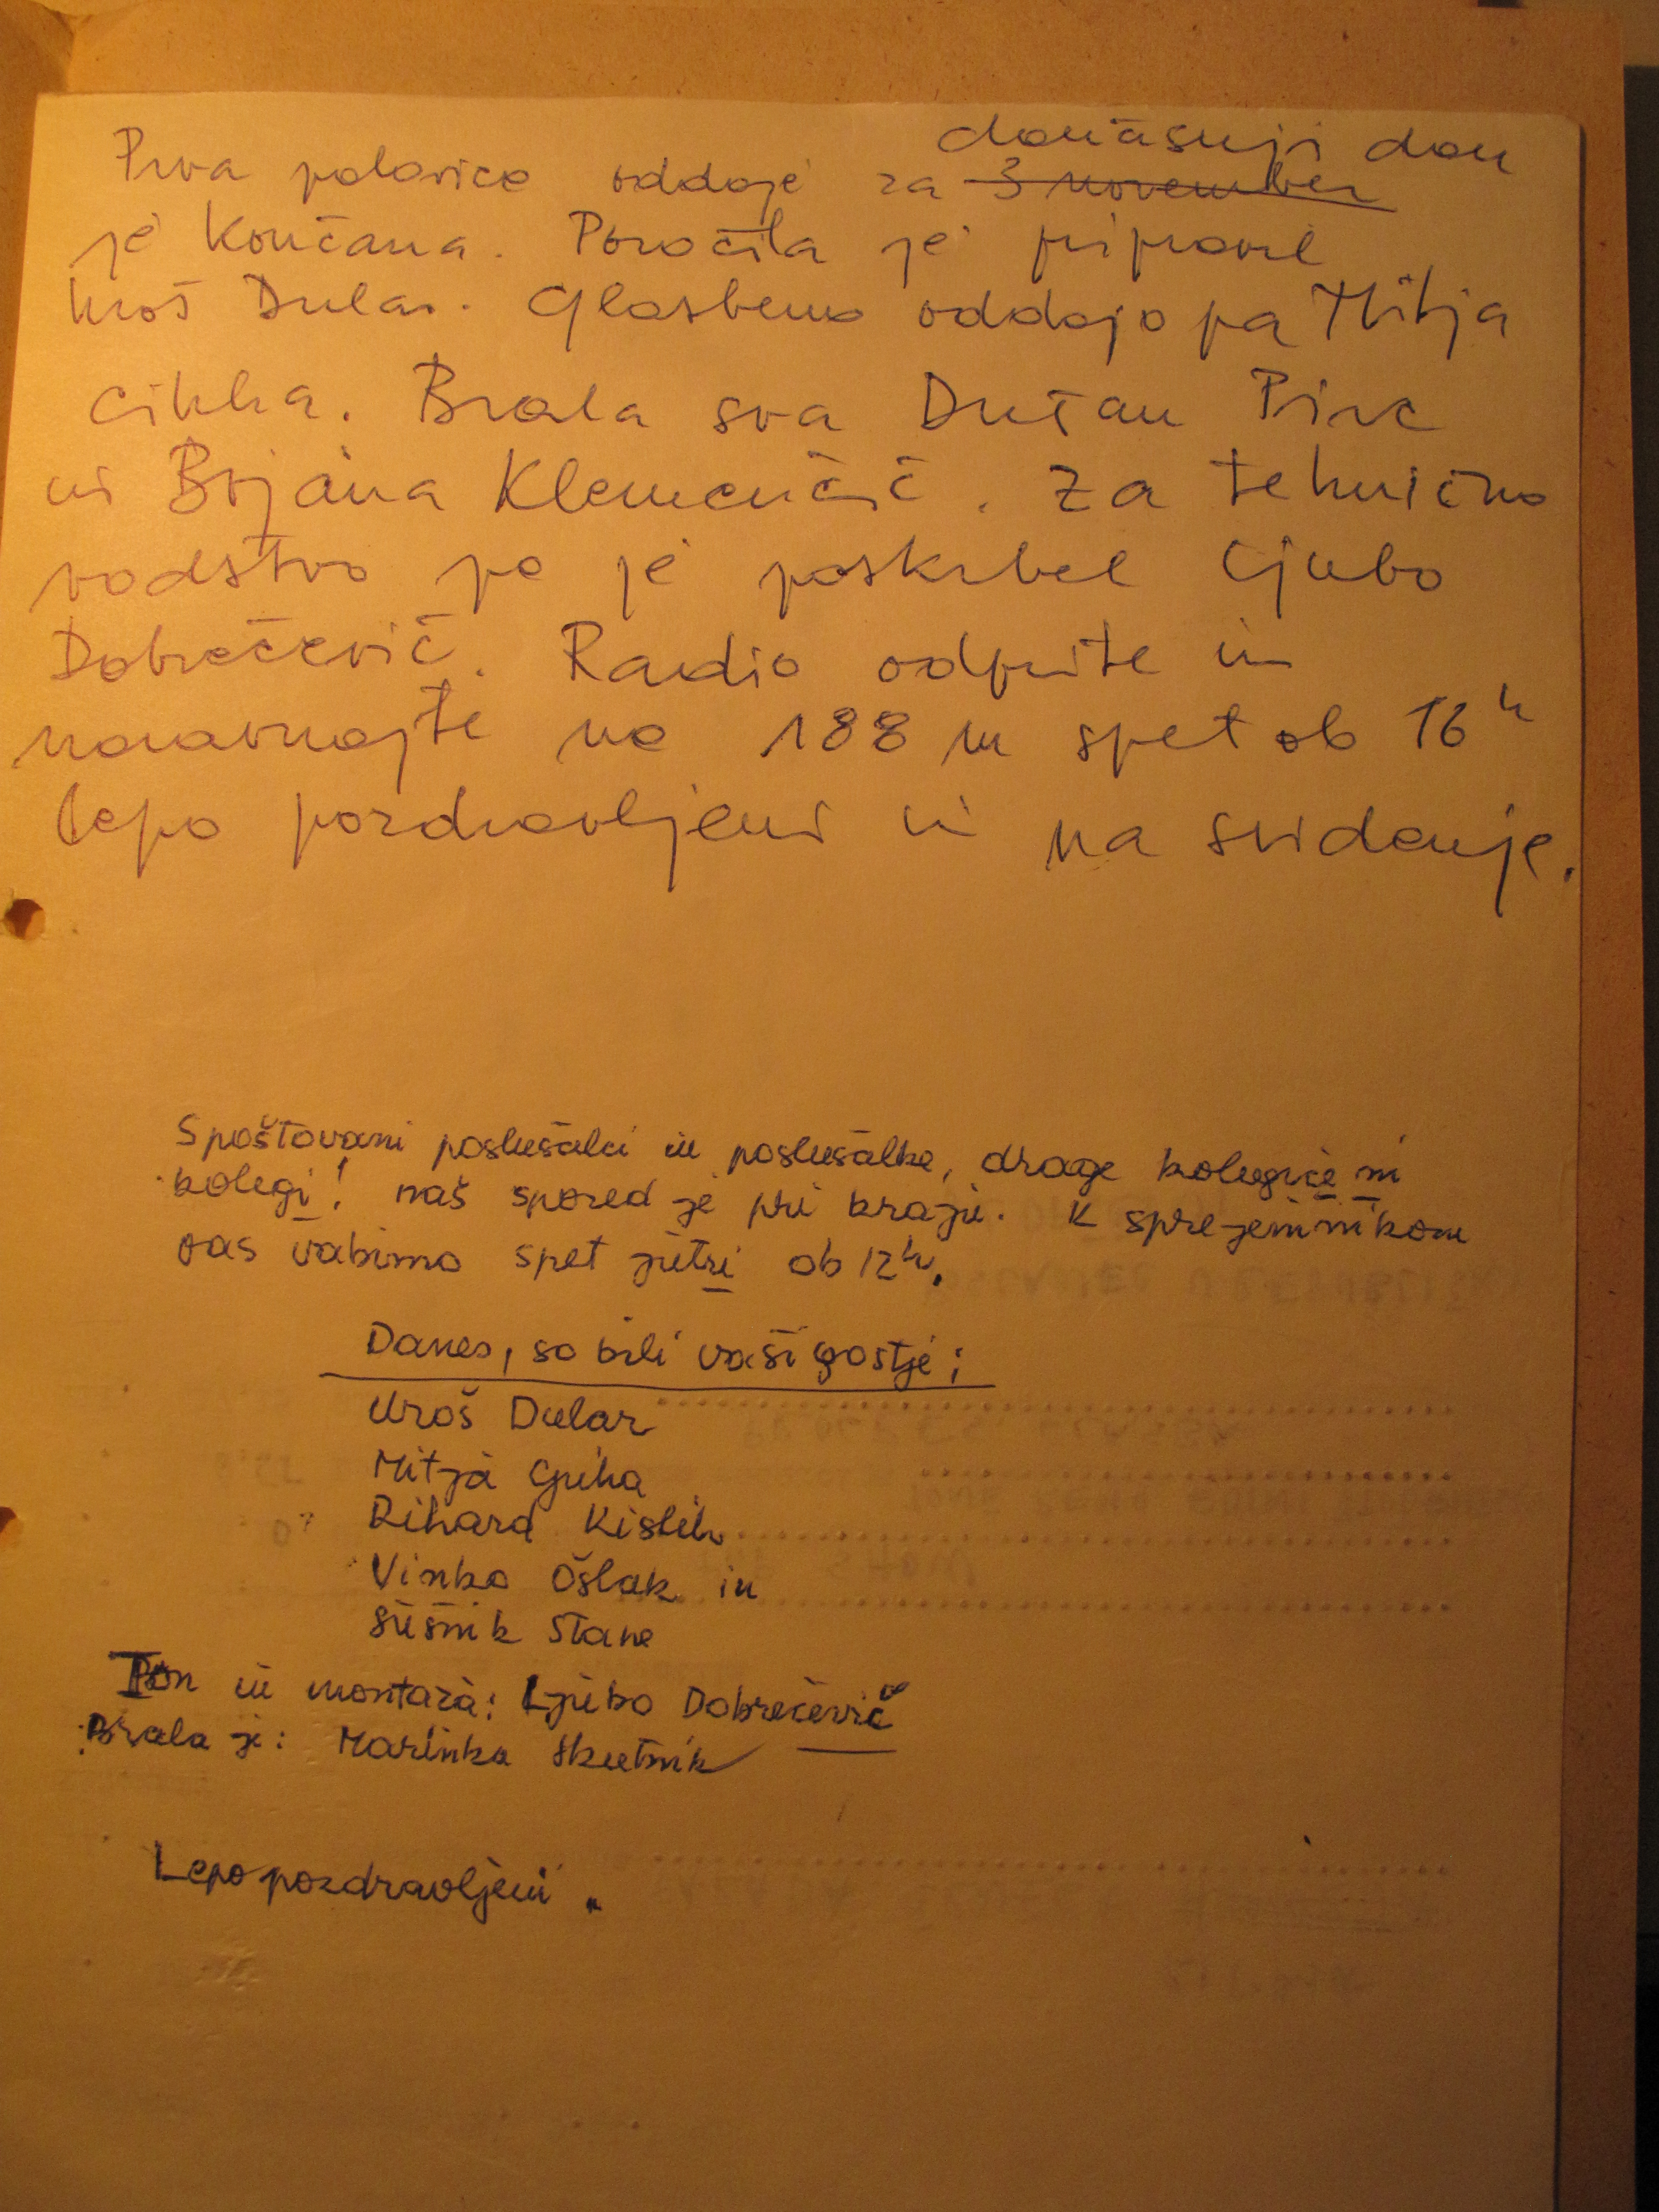 današnji dan
Prva polovica oddaje za 3 november
je končana. Poročila je pripravil
Uroš Dular. Glasbeno oddajo pa Mitja
Cikha. Brala sva Dušan Pirc
in Bojana Klemenčič. Za tehnično
vodstvo pa je poskrbel Ljubo
Dobrečevič. Radio odprite in
naravnajte na 188 m spet ob 16 h
lepo pozdravljeni in na svidenje.
Spoštovani poslušalci in poslušalke, drage kolegice in
kolegi! naš spored je pri kraju. K sprejemnikom
vas vabimo spet jutri ob 12 h.
Danes, so bili vaši gostje:
Uroš Dular
Mitja
Rihard Kisleh
Vinko Ošlak in
Sušnik Stane
Ton in montaža: Ljubo Dobrečevič
Brala je: Marinka Skutnik
Lepo pozdravljeni.